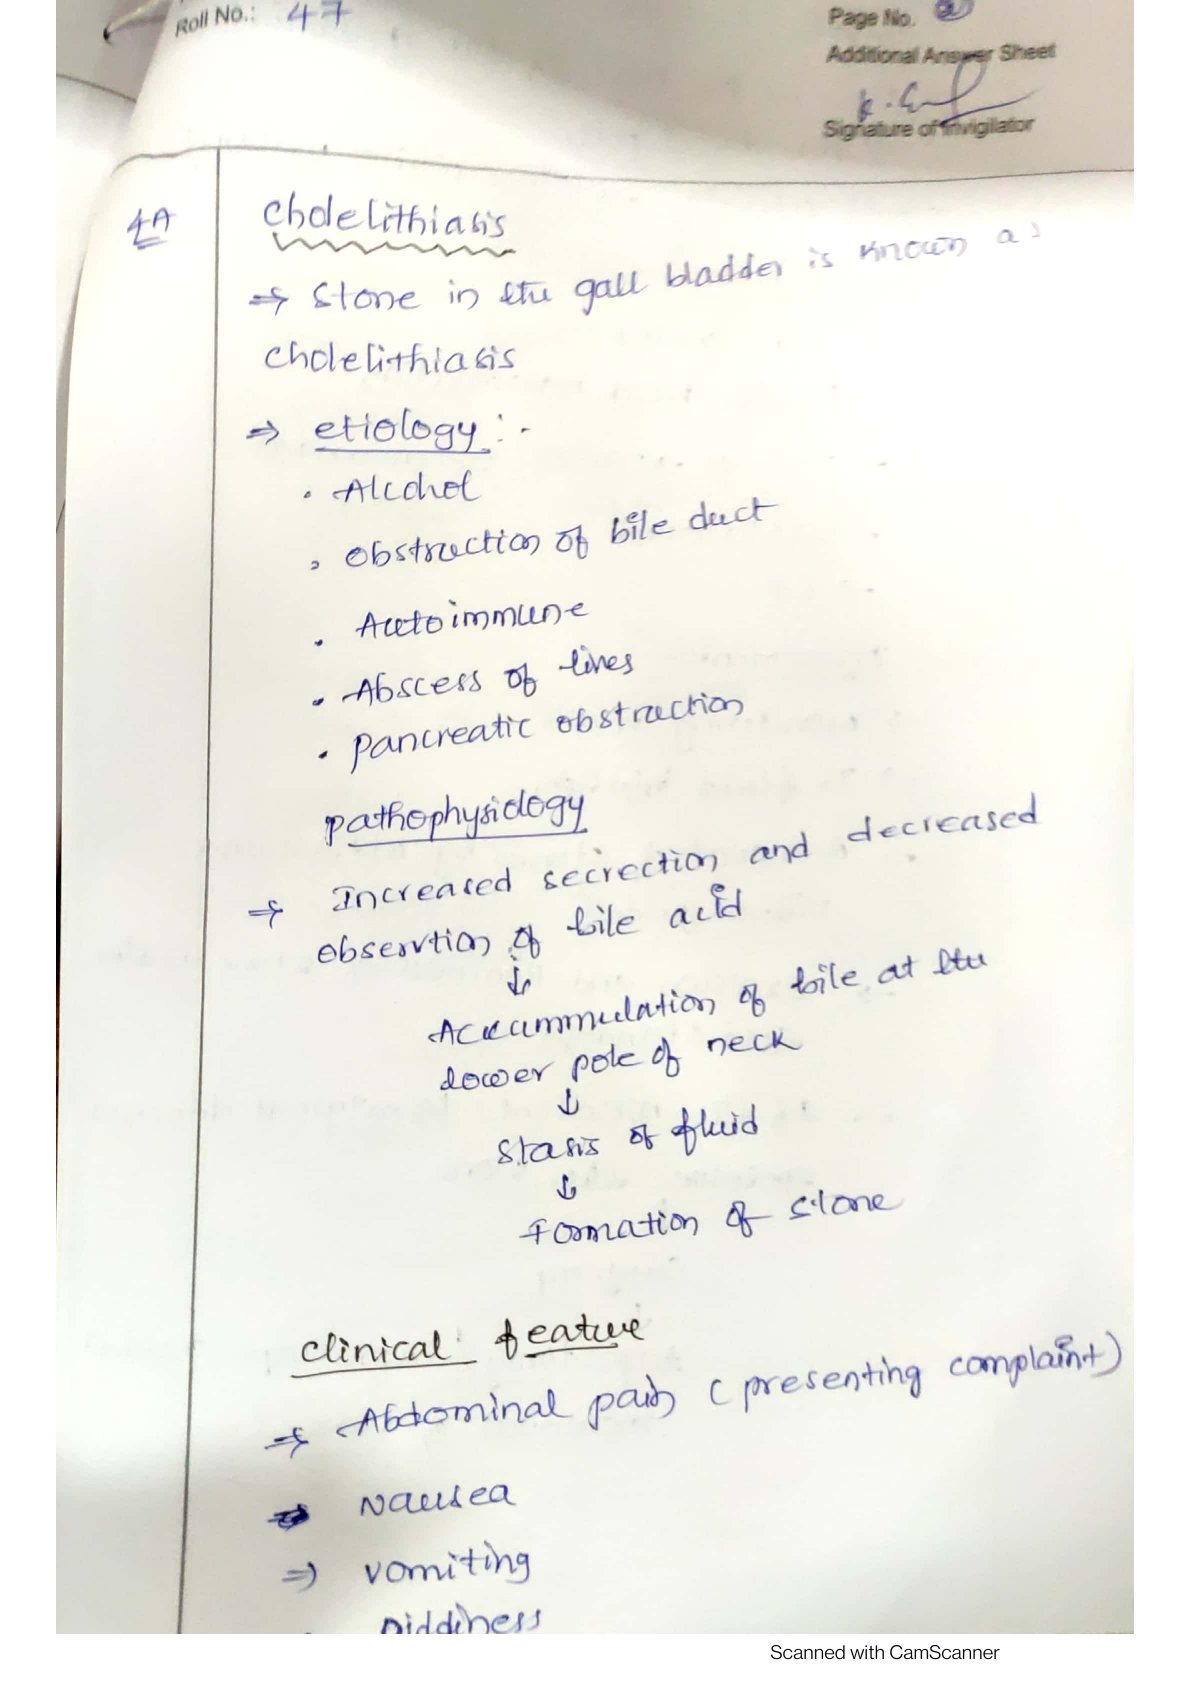 Roll No.: 47
Page No. 2
Additional Answer Sheet
Signature of Invigilator
4A
Cholelithiasis
⇒ Stone in the gall bladder is known as
Cholelithiasis
⇒ etiology :-
• Alcohol
• Obstruction of bile duct
• Autoimmune
• Abscess of lives
• pancreatic obstruction
pathophysiology
⇒ Increased secrection and decreased
obsesrvtion of bile acid
↓
Accummulation of bile at the
lower pole of neck
↓
Stasis of fluid
↓
Formation of stone
clinical feature
⇒ Abdominal pain (presenting complaint)
⇒ Nausea
⇒ vomiting
Diddiness
Scanned with CamScanner